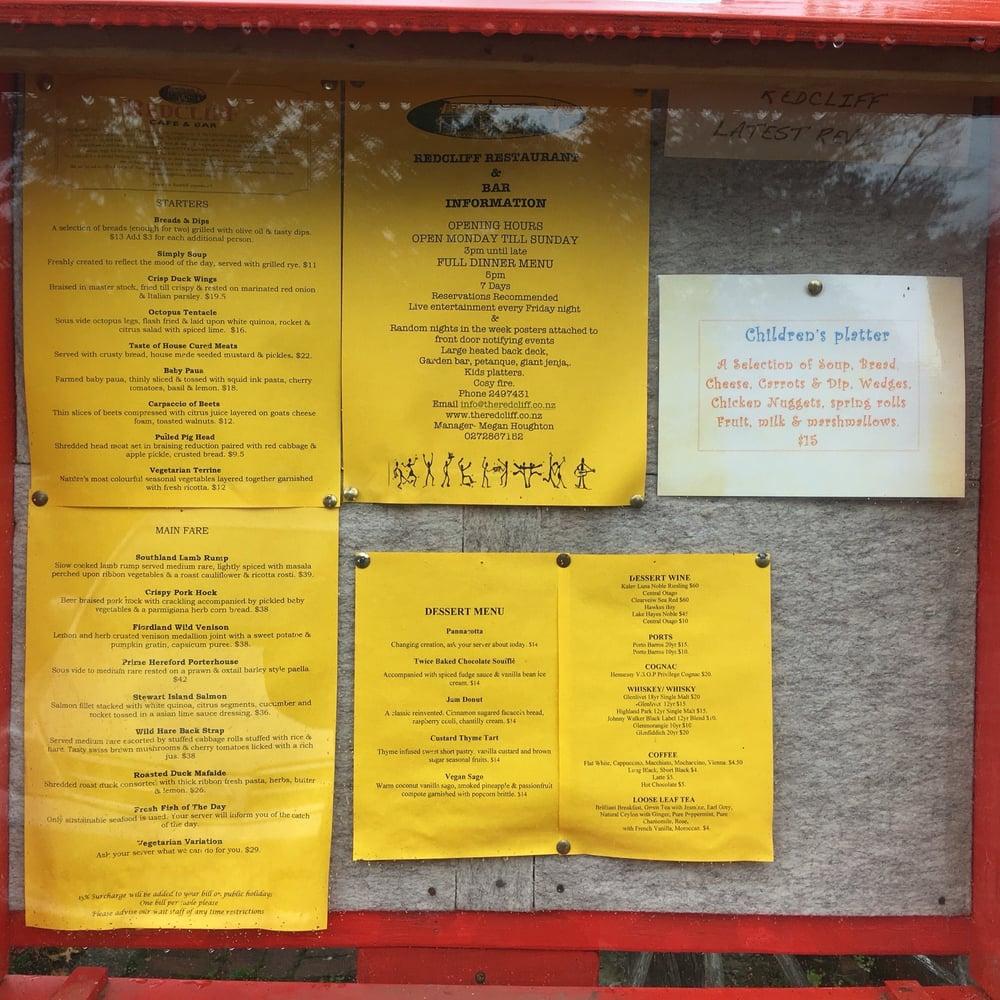 REDCLIFF
CAFE & BAR
STARTERS
Breads & Dips
A selection of breads (enough for two) grilled with olive oil & tasty dips.
$13 Add $3 for each additional person.
Simply Soup
Freshly created to reflect the mood of the day, served with grilled rye. $11
Crisp Duck Wings
Braised in master stock, fried till crispy & rested on marinated red onion
& Italian parsley. $19.5
Octopus Tentacle
Sous vide octopus legs, flash fried & laid upon white quinoa, rocket &
citrus salad with spiced lime. $16.
Taste of House Cured Meats
Served with crusty bread, house made seeded mustard & pickles. $22.
Baby Paua
Farmed baby paua, thinly sliced & tossed with squid ink pasta, cherry
tomatoes, basil & lemon. $18.
Carpaccio of Beets
Thin slices of beets compressed with citrus juice layered on goats cheese
foam, toasted walnuts. $12.
Pulled Pig Head
Shredded head meat set in braising reduction paired with red cabbage &
apple pickle, crusted bread. $9.5
Vegetarian Terrine
Nature's most colourful seasonal vegetables layered together garnished
with fresh ricotta. $12
MAIN FARE
Southland Lamb Rump
Slow cooked lamb rump served medium rare, lightly spiced with masala
perched upon ribbon vegetables & a roast cauliflower & ricotta rosti. $39.
Crispy Pork Hock
Beer braised pork hock with crackling accompanied by pickled baby
vegetables & a parmigiana herb corn bread. $38
Fiordland Wild Venison
Lemon and herb crusted venison medallion joint with a sweet potatoe &
pumpkin gratin, capsicum puree. $38.
Prime Hereford Porterhouse
Sous vide to medium rare rested on a prawn & oxtail barley style paella.
$42
Stewart Island Salmon
Salmon fillet stacked with white quinoa, citrus segments, cucumber and
rocket tossed in a asian lime sauce dressing. $36.
Wild Hare Back Strap
Served medium rare escorted by stuffed cabbage rolls stuffed with rice &
hare. Tasty swiss brown mushrooms & cherry tomatoes licked with a rich
jus. $38
Roasted Duck Mafalde
Shredded roast duck consorted with thick ribbon fresh pasta, herbs, butter
& lemon. $26.
Fresh Fish of The Day
Only sustainable seafood is used. Your server will inform you of the catch
of the day.
Vegetarian Variation
Ask your server what we can do for you. $29.
15% Surcharge will be added to your bill on public holidays
One bill per table please
Please advise our wait staff of any time restrictions
REDCLIFF RESTAURANT
&
BAR
INFORMATION
OPENING HOURS
OPEN MONDAY TILL SUNDAY
3pm until late
FULL DINNER MENU
5pm
7 Days
Reservations Recommended
Live entertainment every Friday night
&
Random nights in the week posters attached to
front door notifying events
Large heated back deck,
Garden bar, petanque, giant jenja,.
Kids platters.
Cosy fire.
Phone 2497431
Email info@theredcliff.co.nz
www.theredcliff.co.nz
Manager- Megan Houghton
0272867152
DESSERT MENU
Pannacotta
Changing creation, ask your server about today. $14
Twice Baked Chocolate Soufflé
Accompanied with spiced fudge sauce & vanilla bean ice
cream. $14
Jam Donut
A classic reinvented. Cinnamon sugared focaccia bread,
raspberry couli, chantilly cream. $14
Custard Thyme Tart
Thyme infused sweet short pastry, vanilla custard and brown
sugar seasonal fruits. $14
Vegan Sago
Warm coconut vanilla sago, smoked pineapple & passionfruit
compote garnished with popcorn brittle. $14
DESSERT WINE
Noble Riesling $60
Central Otago
Clearview Sea Red $60
Hawkes Bay
Lake Hayes Noble $45
Central Otago $10
PORTS
Porto Barros 20yr $15.
Porto Barros 10yr $10.
COGNAC
Hennessy V.S.O.P Privilege Cognac $20.
WHISKEY/ WHISKY
Glenlivet 18yr Single Malt $20
Glenlivet 12yr $15
Highland Park 12yr Single Malt $15.
Johnny Walker Black Label 12yr Blend $10.
Glenmorangie 10yr $10
Glenfiddich 20yr $20
COFFEE
Flat White, Cappucino, Macchiato, Mochaccino, Vienna. $4.50
Long Black, Short Black $4.
Latte $5.
Hot Chocolate $5.
LOOSE LEAF TEA
Brilliant Breakfast, Green Tea with Jasmine, Earl Grey,
Natural Ceylon with Ginger, Pure Peppermint, Pure
Chamomile, Rose,
with French Vanilla, Moroccan. $4.
REDCLIFF
LATEST
Children's platter
A Selection of Soup, Bread,
Cheese, Carrots & Dip, Wedges,
Chicken Nuggets, spring rolls
Fruit, milk & marshmallows.
$15